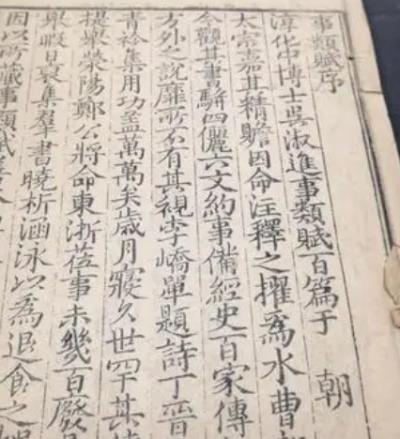 事類賦序
淳化中博士吳淑進事類賦百篇于　朝
太宗嘉其精贍因命注釋之擢為水曹
今觀其書駢四儷六文約事備經史百家傳
方外之說靡所不有其視李嶠單題詩丁晉
青衿集用功盖萬萬矣歲月寖久世罕其
提舉滎陽鄭公將命東浙莅事未幾百廢
舉暇日裒集羣書曉析涵泳以為退食之
因以所藏事類賦